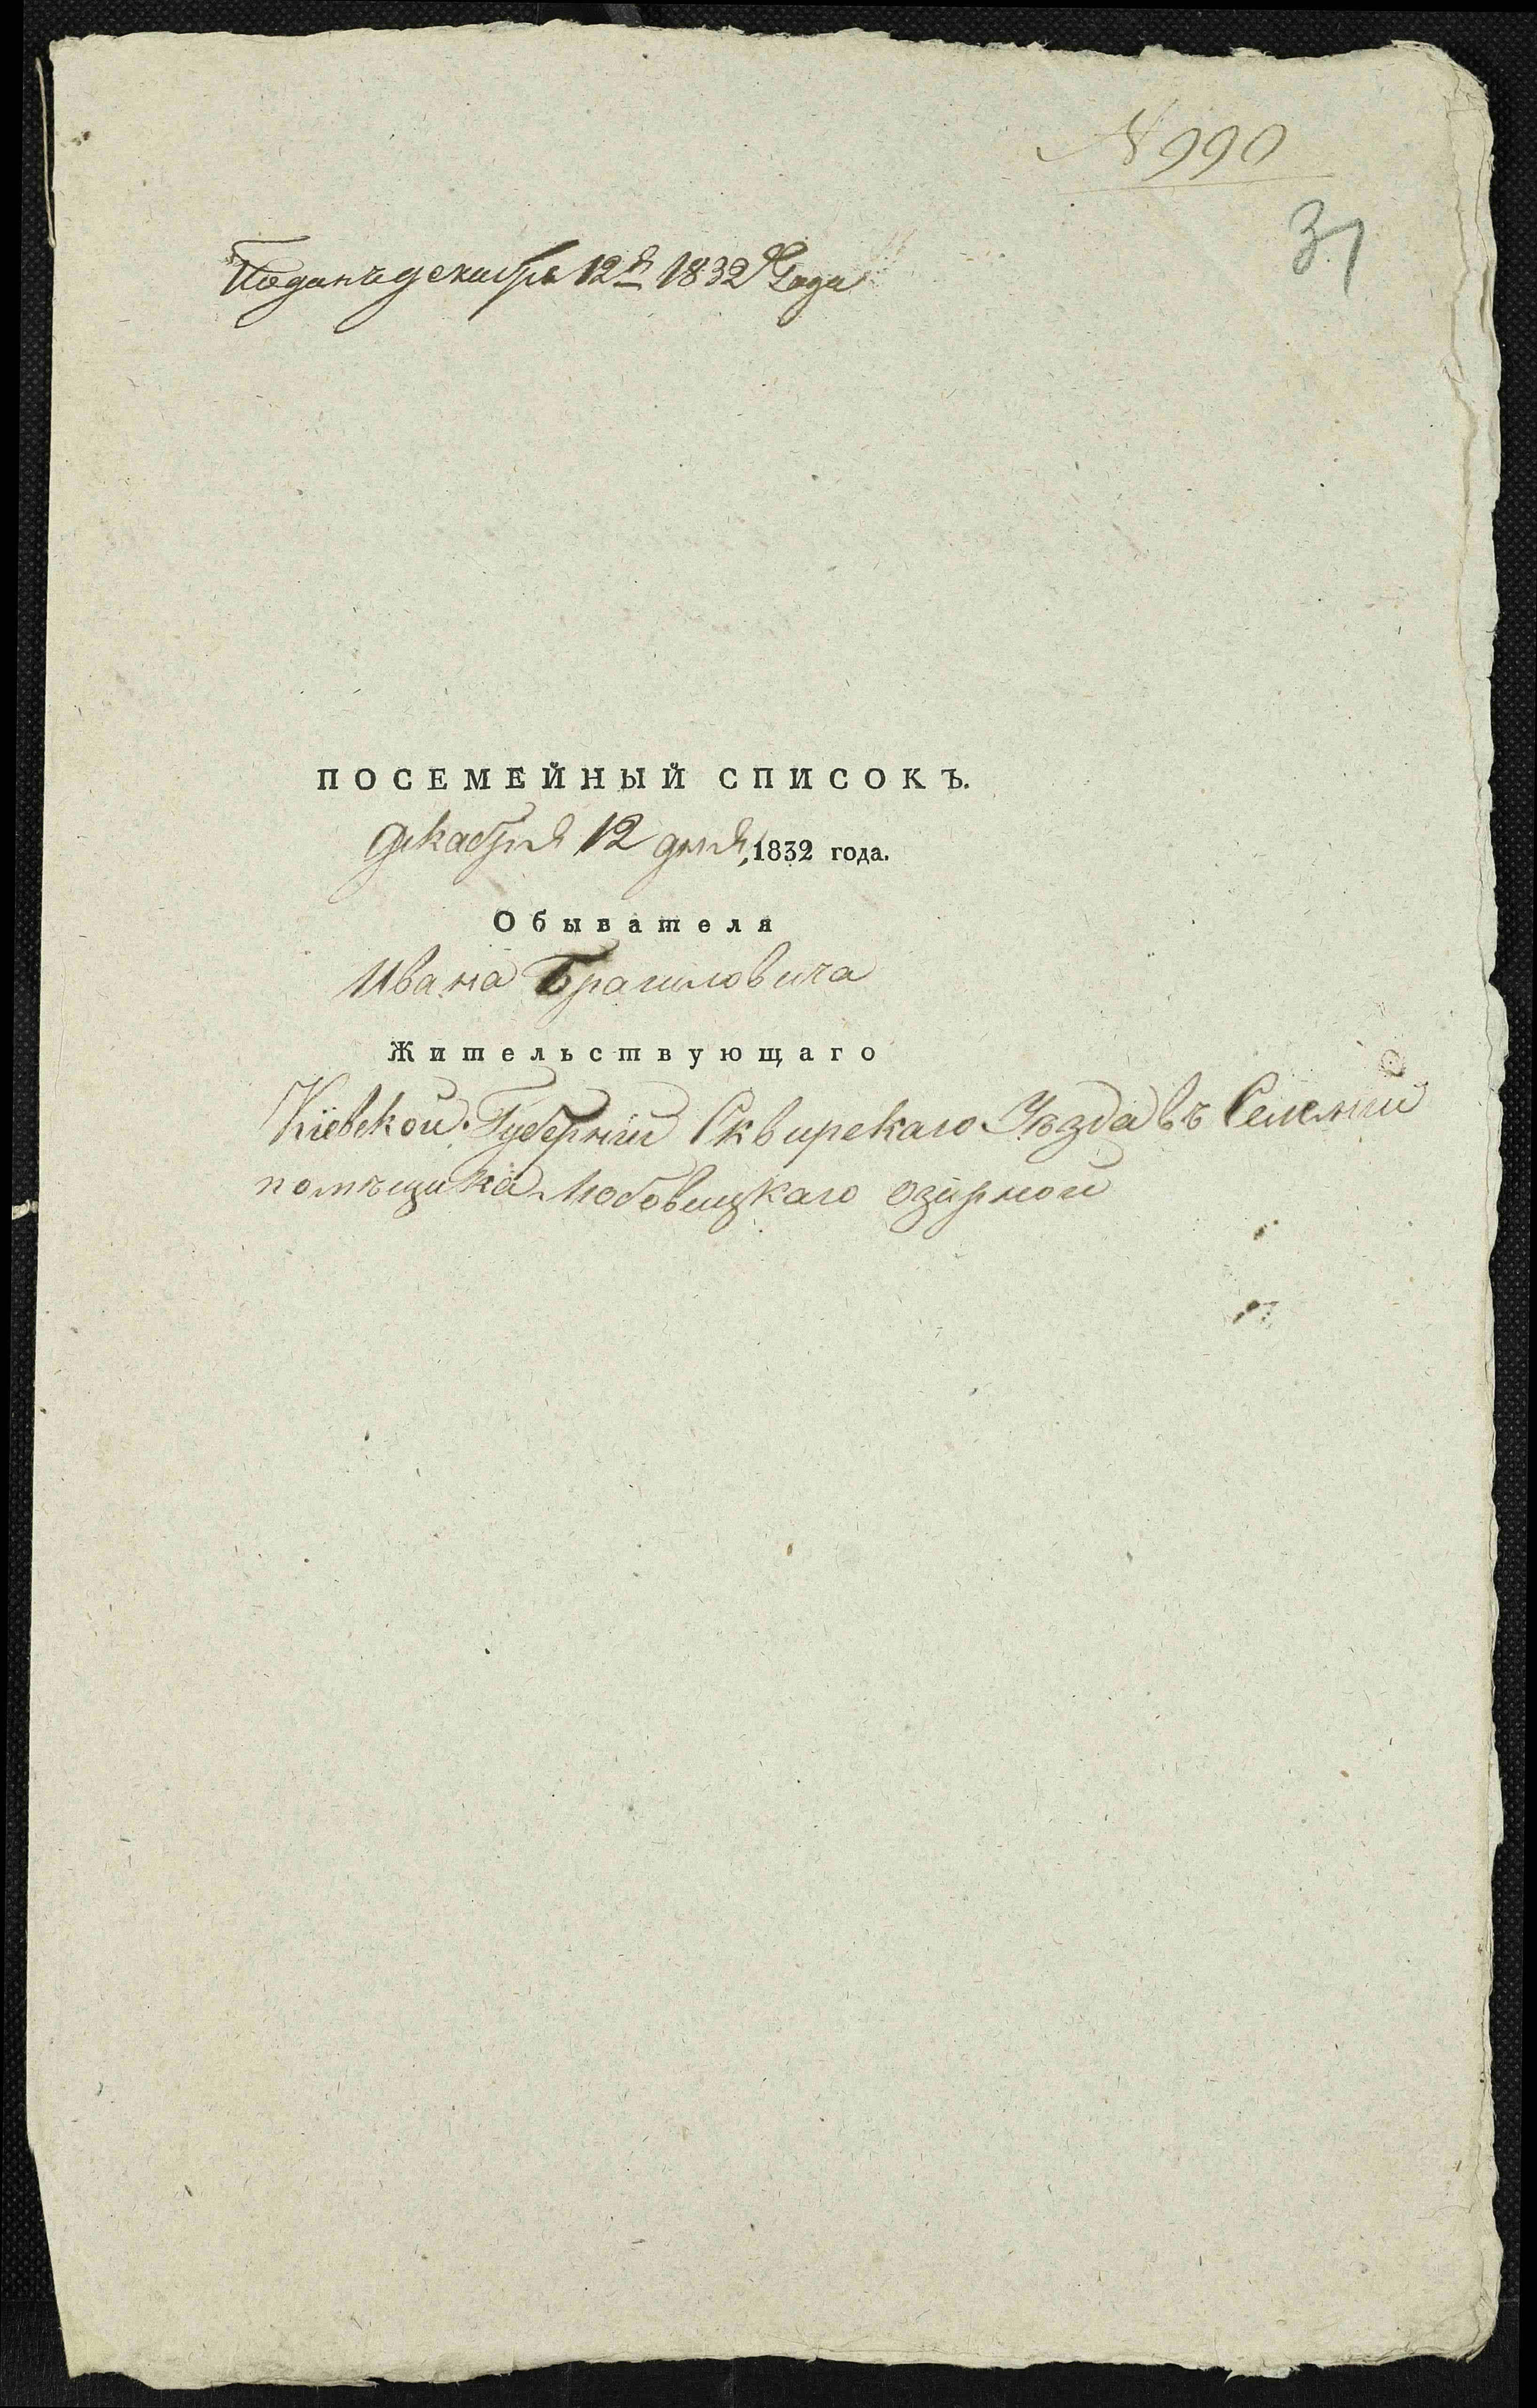 N 990
31
Поданъ декабря 12я 1832 Года
ПОСЕМЕЙНЫЙ СПИСОКЪ.
Декабря 12 дня, 1832 года.
Обывателя
Ивана
Жительствующаго
Кіевской Губерніи Сквирскаго Уѣзда въ Селеніи
помѣщика Любовицкаго Озирной